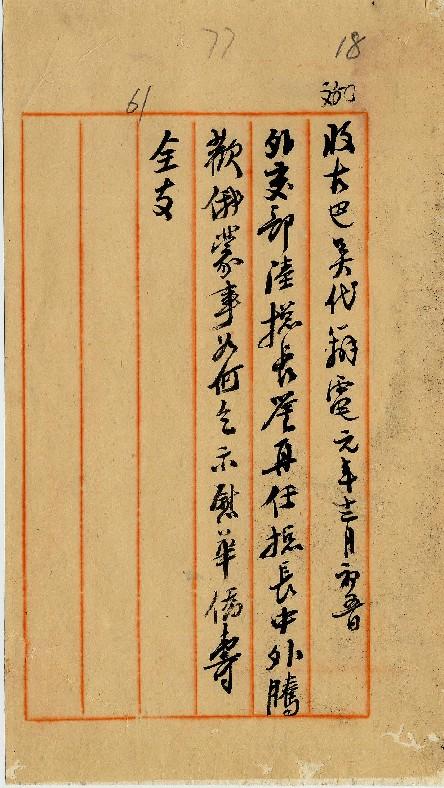 18
77
61
收古巴吳代辦電元年十二月初五日
外交部陸總長鑒再任總長中外騰
歡俄蒙事如何乞示慰華僑壽
全支